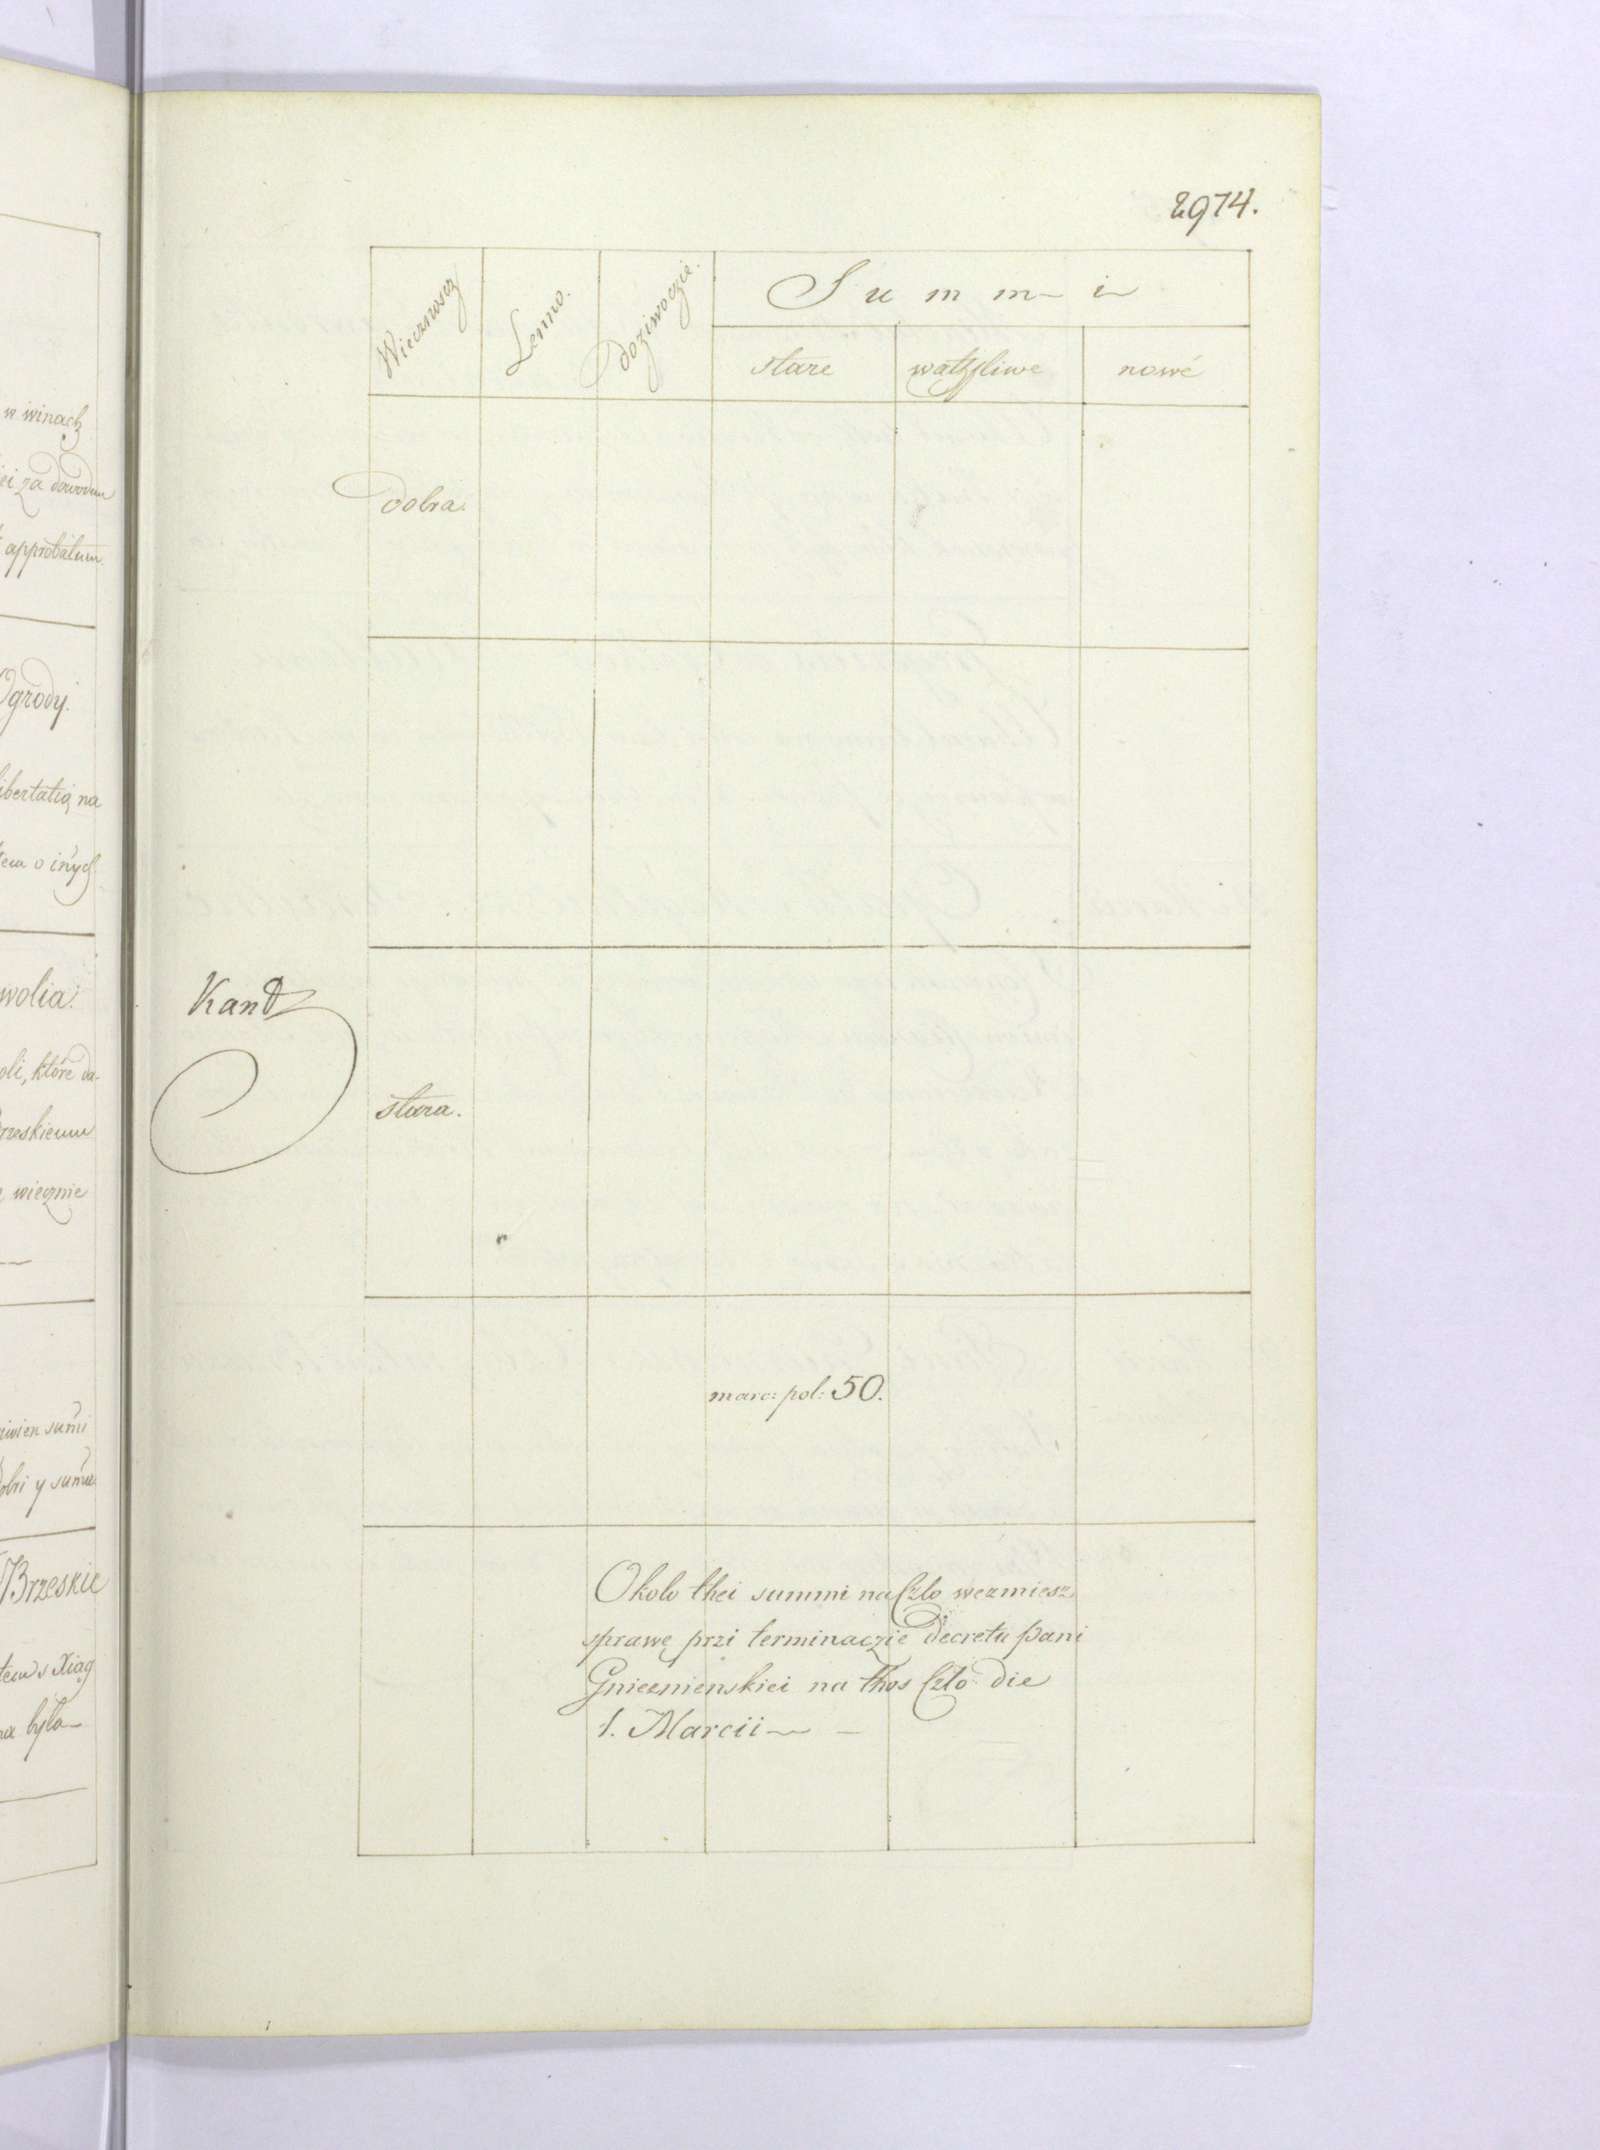 w winach
ei za dowodem
approbatum
Ogrody.
libertatią na
tem o inych
wolia.
oli, które da-
rzeskiemu
wiecznie
sumi
dobri y sume
Brzeskie
tem s Xiąg
na była
2974.
Wiecznoscz
Lenno.
dozivoczie.
Summi
stare
wątpliwe
nowé
dobra.
Kand
stara.
marc: pol: 50.
Około thei summi na Czło wezmiesz
sprawę przi terminaczie Decretu pani
Gnieznienskiei na thos Czło die
1. Marcii